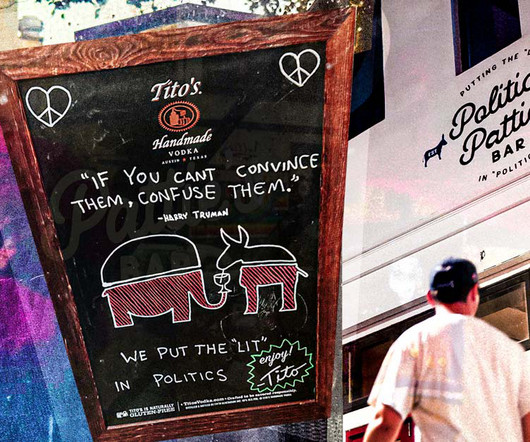 Tito's
Handmade
VODKA
AUSTIN TEXAS
"IF YOU CANT CONVINCE
THEM, CONFUSE THEM."
-HARRY TRUMAN
WE PUT THE "LIT"
IN POLITICS
enjoy!
Tito
TITO'S IS NATURALLY
GLUTEN-FREE
TitosVodka.com • Crafted to be savored responsibly.
PUTTING THE "
Politic
Pattie
BAR
IN "POLITI